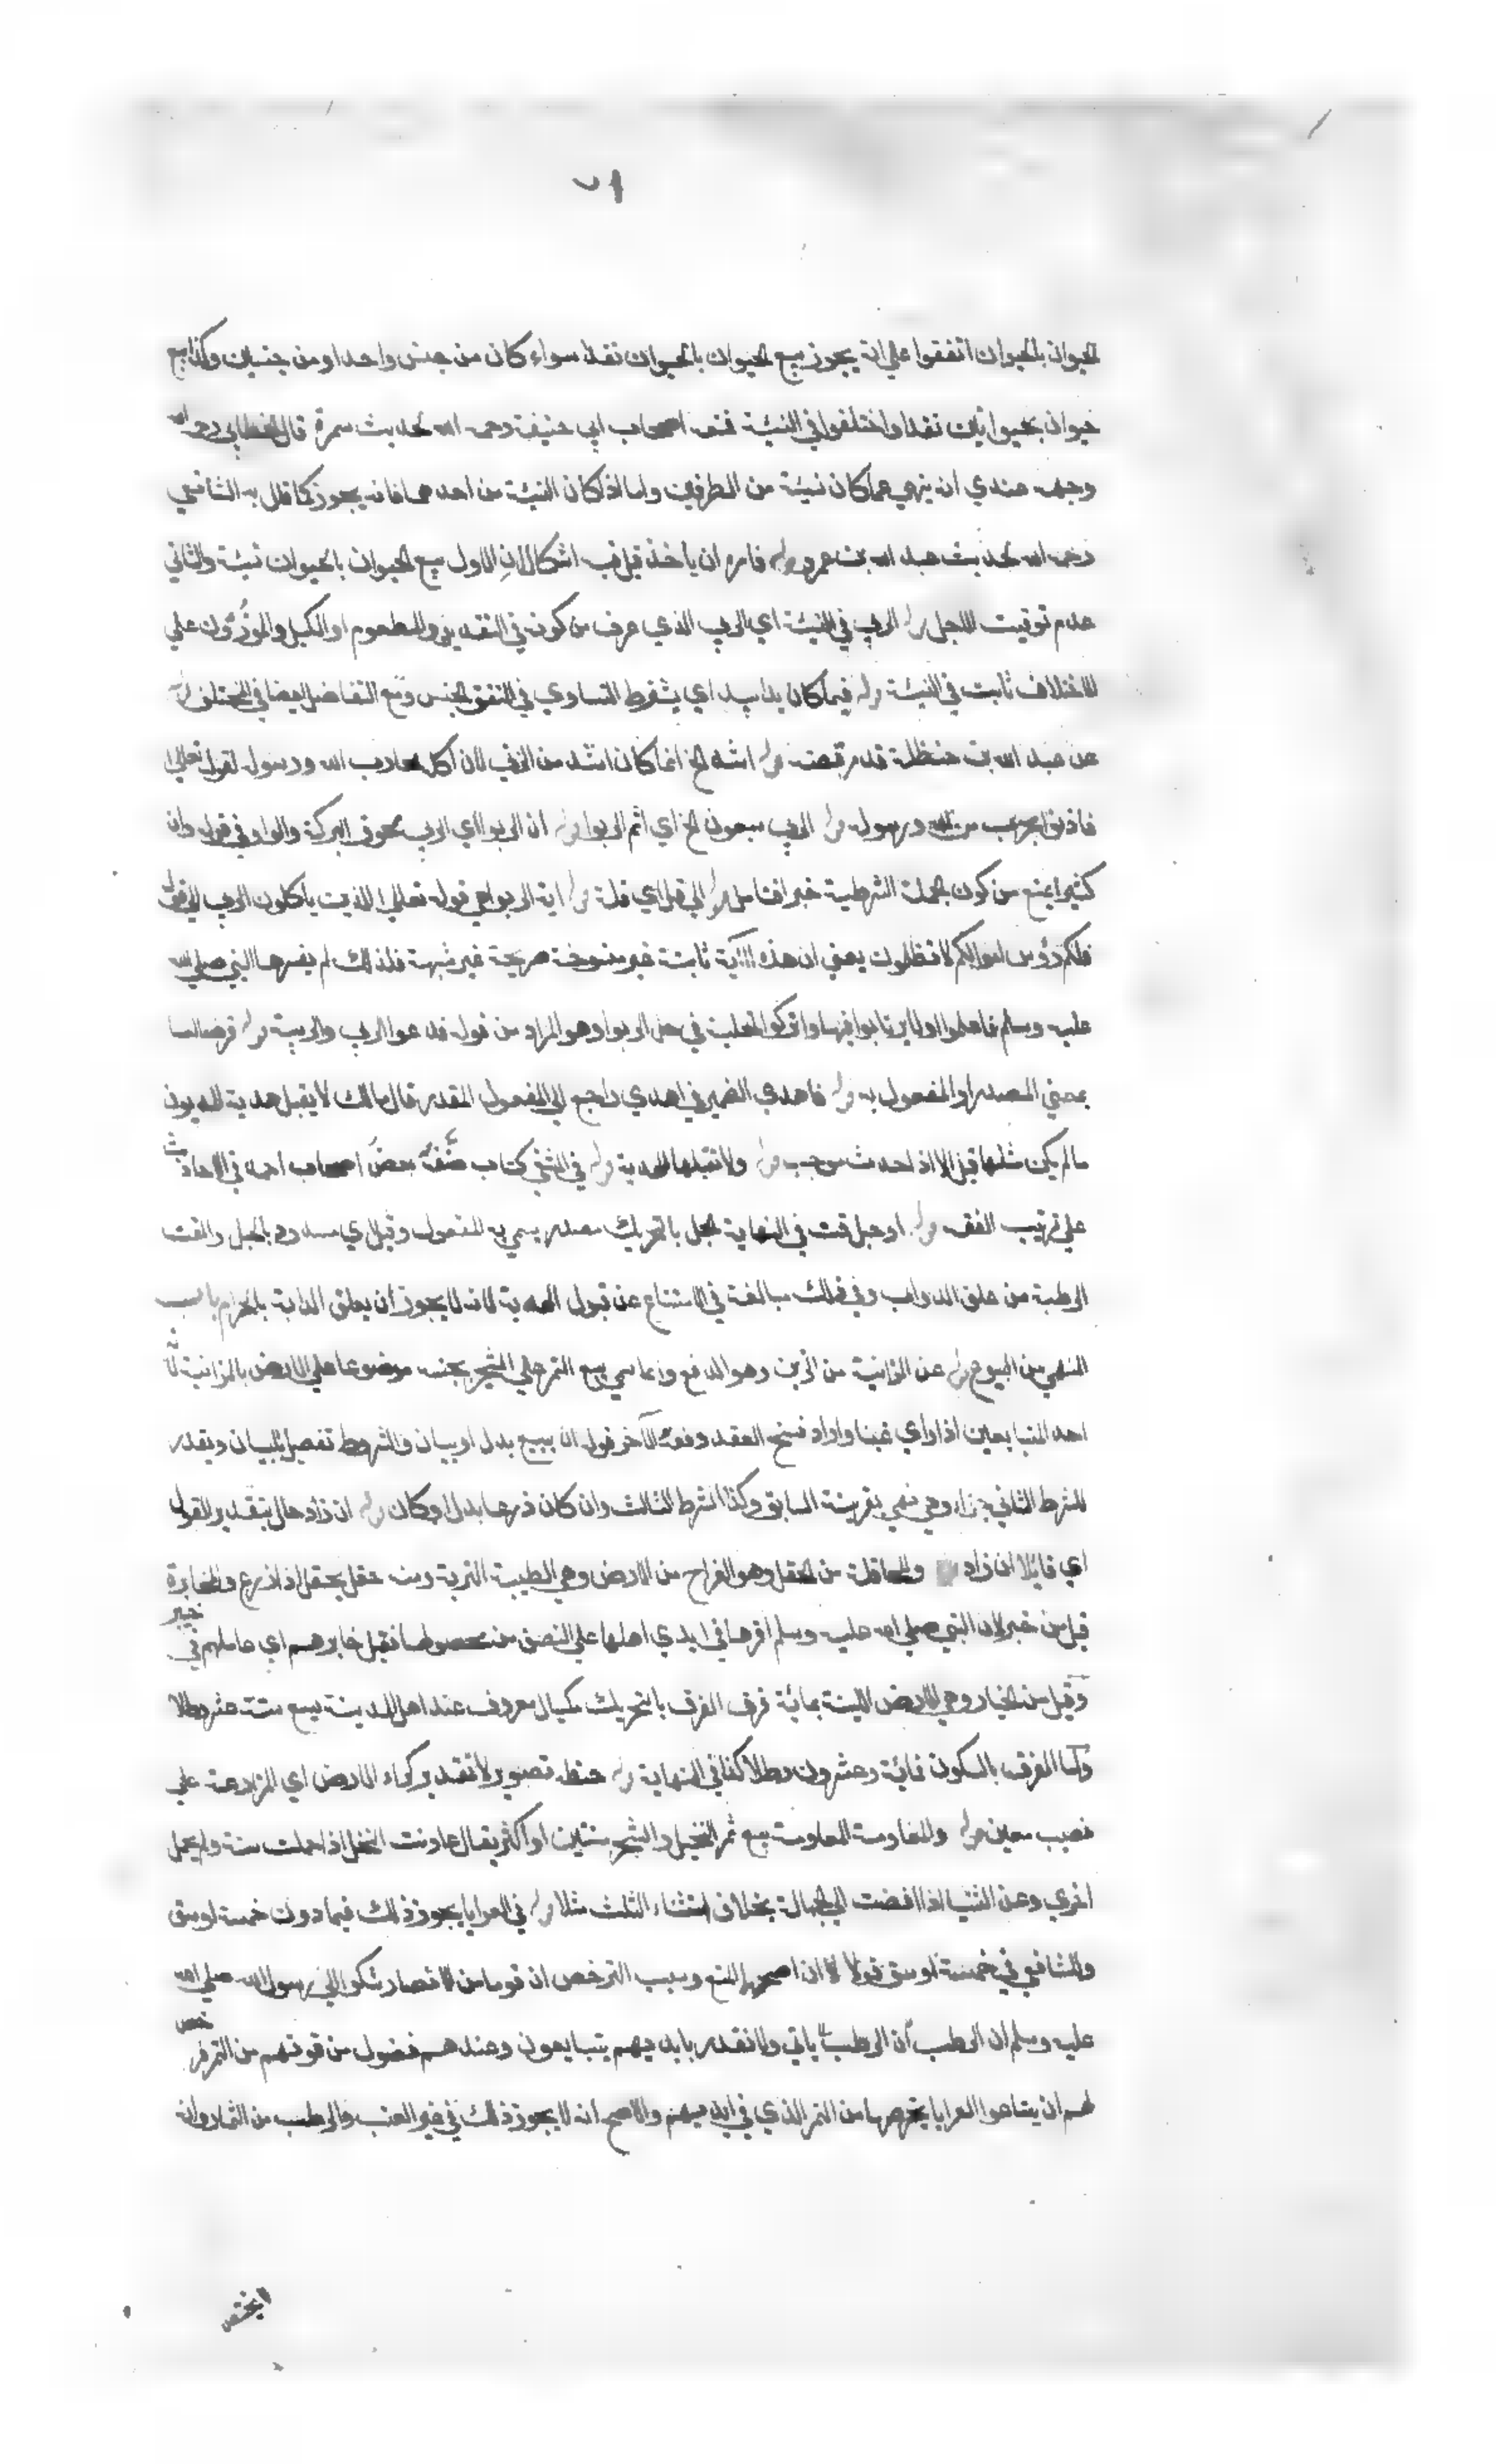 ٧١
الحيوان بالحيوان اتفقوا علي انه يجوز بيع الحيوان بالحيوان نقدا سواء كان من جنس واحد او من جنسين وكذا بيع
حيوان بحيوانين نقدا واختلفوا في النسئة فمنعه اصحاب ابي حنيفة رحمه الله لحديث سمرة قال الخطابي رحمه الله
وجهه عندي انه ينهي عما كان نسئة من الطرفين واما اذا كان النسئة من احدهما فانه يجوز كما قال به الشافعي
رحمه الله لحديث عبد الله بن عمرو قوله فامره ان ياخذ قيل فيه اشكالان الاول بيع الحيوان بالحيوان نسئة والثاني
عدم توقيت الاجل قوله الربي في النسئة اي الربي الذي عرف من كونه في النقدين والمطعوم او المكيل والموزون علي
الاختلاف ثابت في النسئة قوله فيما كان يدا بيد اي يشترط التساوي في المتفق الجنس ومع التفاضل ايضا في المختلف قوله
عن عبد الله بن حنظلة قد مر قصته قوله اشد الخ انما كان اشد من الزني لان اكله محارب الله ورسوله لقوله تعالي
فاذنوا بحرب من الله ورسوله قوله الربي سبعون الخ اي اثم الربوا قوله ان الربوا اي الربي ممحوق البركة والواو في قوله وان
كثير ا يمنع من كون الجملة الشرطية خبر ا فتامل قوله الي قل اي قلة قوله اية الربوا هي قوله تعالي الذين ياكلون الربي الي قوله
فلكم رؤس اموالكم لا تظلمون يعني ان هذه الآية ثابتة غير منسوخة صريحة غير مشبهة فلذلك لم يفسرها النبي صلي الله
عليه وسلم فاعملوا ولا ترتابوا فيها واتركوا الحيلة في حل الربوا وهو المراد من قوله فدعوا الربي والريبة قوله قرضا اما
بمعني المصدر او المفعول به قوله فاهدي الضمير في اهدي راجع الي المفعول المقدر قال مالك لا يقبل هدية المديون
ما لم يكن مثلها قبل الا اذا حدث موجب قوله ولا تقبلها الهدية قوله في المنتقي كتاب صنفه بعض اصحاب احمد في الاحاديث
علي ترتيب الفقه قوله او حبل قت في النهاية الحبل بالتحريك مصدر يسمي به المفعول وقيل اي مسدود بالحبل والقت
الرطبة من علف الدواب وفي ذلك مبالغة في الامتناع عن قبول الهدية لانه لا يجوز ان يعلق الدابة بالحرام باب
المنهي من البيوع قوله عن المزابنة من الزبن وهو الدفع وانما سمي بيع التمر علي الشجر بجنسه موضوعا علي الارض بالمزابنة لان
احد المتبايعين اذا راي غبنا واراد فسخ العقد دفعه الآخر قوله ان يبيع بدل او بيان والشروط تفصيل للبيان ويقدر
للشرط الثاني جزاء وهي نهي بقرينة السابق وكذا الشرط الثالث وان كان ذرعا بدل او كان قوله ان زاد حال بتقدير القول
اي قائلا ان زاد والمحاقلة من الحقل وهو القراح من الارض وهي الطيبة التربة ومنه حقل يحقل اذا زرع والمخابرة
قيل من خيبر لان النبي صلي الله عليه وسلم اقرها في ايدي اهلها علي النصف من محصولها فقيل خابرهم اي عاملهم في خيبر
وقيل من الخبار وهي الارض اللينة بمائة فرق الفرق بالتحريك مكيال معروف عند اهل المدينة يسع ستة عشر رطلا
واما الفرق بالسكون فمائة وعشرون رطلا كذا في النهاية قوله حنطة تصوير لا تقدير كراء الارض اي المزارعة علي
نصيب معين قوله والمعاومة المعاومة بيع ثمر النخيل والشجر سنتين او اكثر يقال عاومت النخل اذا حملت سنة ولم يحمل
اخري وعن الثنيا اذا افضت الي الجهالة بخلاف استثناء الثلث مثلا قوله في العرايا يجوز ذلك فيما دون خمسة اوسق
وللشافعي في خمسة اوسق قولان اصحهما المنع وسبب الترخص ان قوما من الانصار شكوا الي رسول الله صلي الله
عليه وسلم ان الرطب ان الرطب ياتي ولا نقد بايديهم يتبايعون وعندهم فضول من قوتهم من التمر فرخص
لهم ان يبتاعوا العرايا بخرصها من التمر الذي في ايديهم والاصح انه لا يجوز ذلك في غير العنب والرطب من الثمار وانه
لا يختص